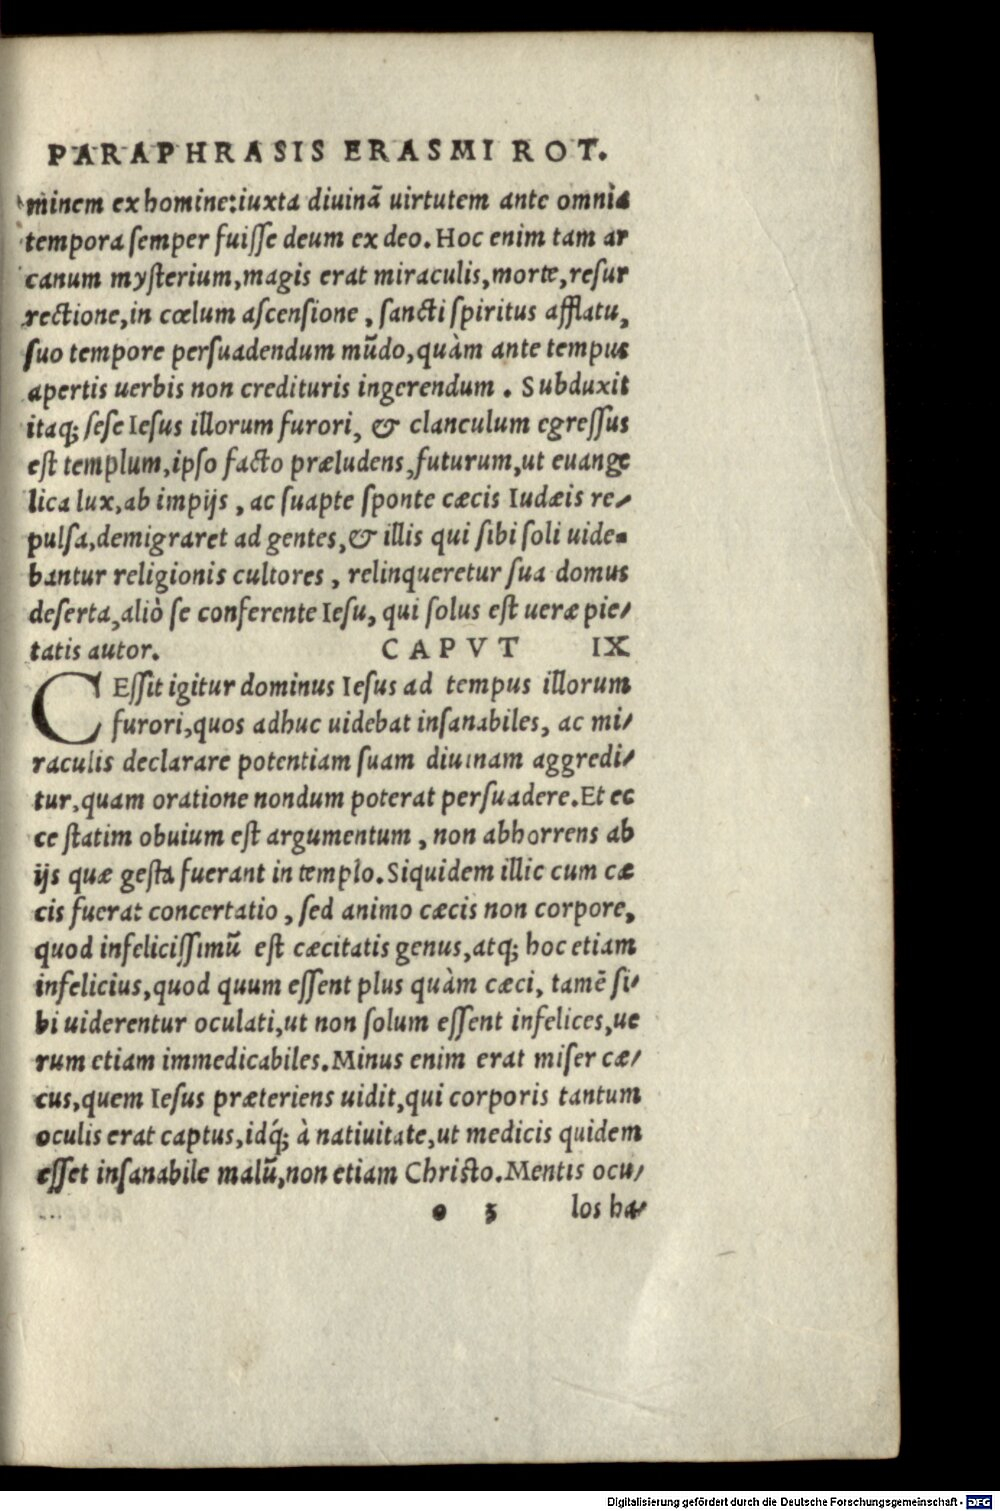 PARAPHRASIS ERASMI ROT.
minem ex homine: iuxta diuinā uirtutem ante omnia
tempora semper fuisse deum ex deo. Hoc enim tam ar
canum mysterium, magis erat miraculis, morte, resur
rectione, in cœlum ascensione, sancti spiritus afflatu,
suo tempore persuadendum mūdo, quàm ante tempus
apertis uerbis non credituris ingerendum. Subduxit
itaq; sese Iesus illorum furori, & clanculum egressus
est templum, ipso facto præludens, futurum, ut euange
lica lux, ab impijs, ac suapte sponte cæcis Iudæis re-
pulsa, demigraret ad gentes, & illis qui sibi soli uide-
bantur religionis cultores, relinqueretur sua domus
deserta, aliò se conferente Iesu, qui solus est ueræ pie-
tatis autor. CAPVT IX
CEssit igitur dominus Iesus ad tempus illorum
furori, quos adhuc uidebat insanabiles, ac mi-
raculis declarare potentiam suam diuinam aggredi-
tur, quam oratione nondum poterat persuadere. Et ec
ce statim obuium est argumentum, non abhorrens ab
ijs quæ gesta fuerant in templo. Siquidem illic cum cæ
cis fuerat concertatio, sed animo cæcis non corpore,
quod infelicissimū est cæcitatis genus, atq; hoc etiam
infelicius, quod quum essent plus quàm cæci, tamē si-
bi uiderentur oculati, ut non solum essent infelices, ue
rum etiam immedicabiles. Minus enim erat miser cæ-
cus, quem Iesus præteriens uidit, qui corporis tantum
oculis erat captus, idq́; à natiuitate, ut medicis quidem
esset insanabile malū, non etiam Christo. Mentis ocu-
o 3 los ha-
Digitalisierung gefördert durch die Deutsche Forschungsgemeinschaft - DFG